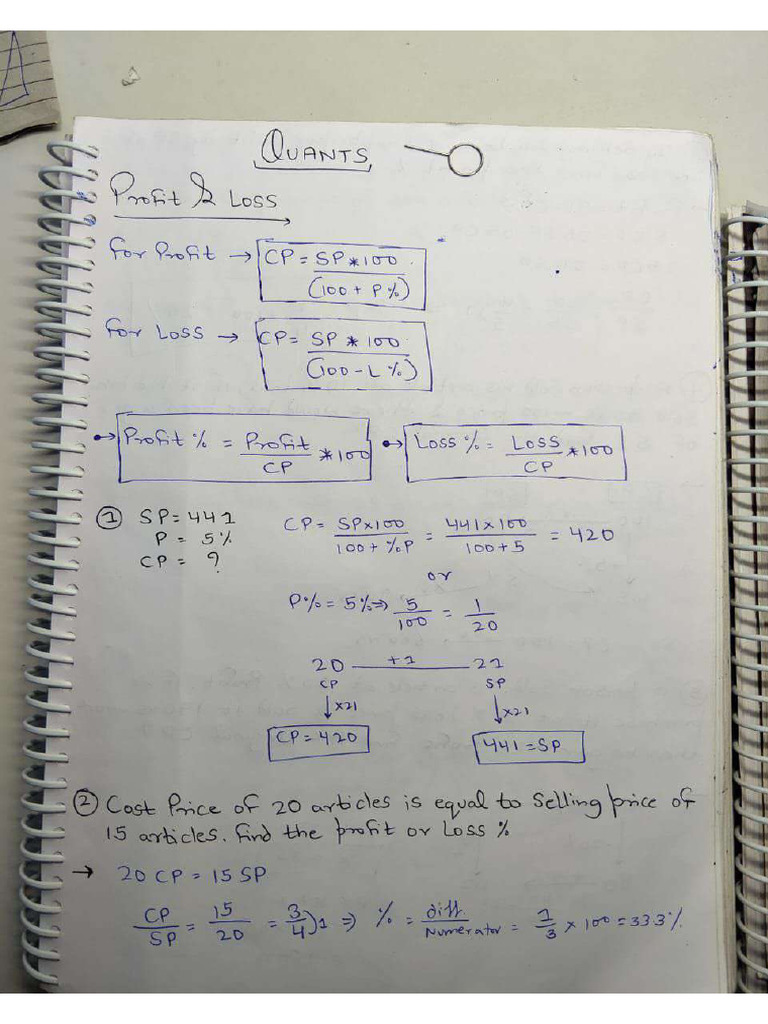 QUANTS
Profit & Loss
For Profit → CP = SP * 100 / (100 + P%)
For Loss → CP = SP * 100 / (100 - L%)
→ Profit % = Profit / CP * 100 → Loss % = Loss / CP * 100
① SP = 441 CP = SP×100 / 100 + %P = 441×100 / 100+5 = 420
P = 5%
CP = ?
or
P% = 5% ⇒ 5/100 = 1/20
20 +1 21
CP SP
↓×21 ↓×21
CP = 420 441 = SP
② Cost Price of 20 articles is equal to selling price of
15 articles. find the profit or Loss %
→ 20 CP = 15 SP
CP/SP = 15/20 = 3/4 )1 ⇒ % = diff/Numerator = 1/3 × 100 = 33.3%